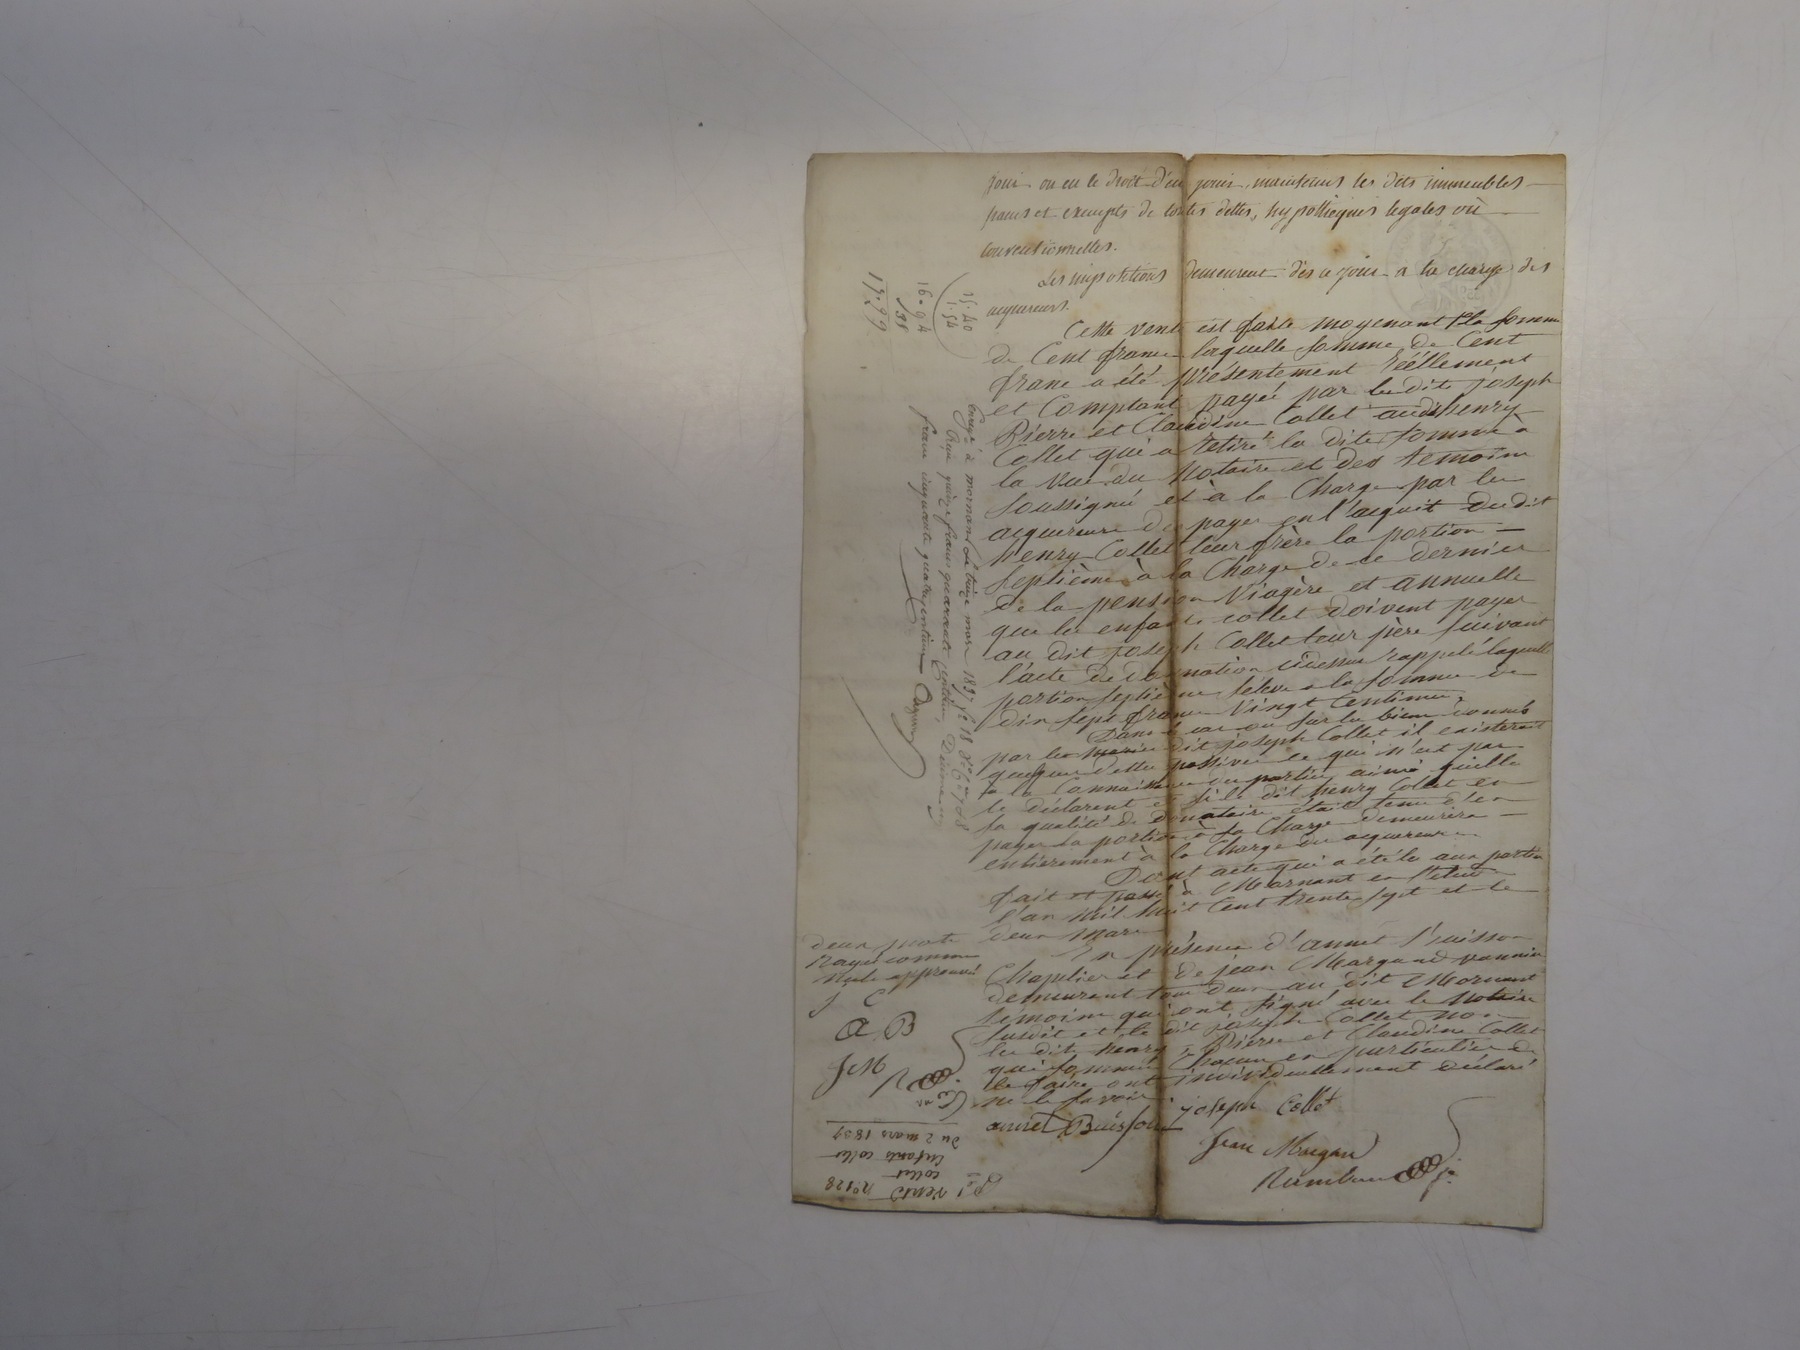 jouir ou eu le droit d'en jouir, maintenus les dits immeubles
francs et exempts de toutes dettes, hypothèques legales ou
conventionnelles.
Les impositions demeurent dès ce jour a la charge des
acquereurs.
Cette vente est faite moyenant la somme
de Cent franc laquelle somme de Cent
franc a été présentement réellement
et Comptant payée par les dits joseph
Pierre et Claudine Collet audit henry
Collet qui a retiré la dite somme a
la vue du Notaire et des temoins
soussigné et à la Charge par les
acquereurs de payer en l'acquit dudit
henry Collet leur frère la portion
septième à la Charge de ce dernier
de la pension Viagère et annuelle
que les enfants collet doivent payer
au dit joseph Collet leur père suivant
l'acte de donation cidessus rappelé laquelle
portion septième s'eleve a la somme de
dix sept francs Vingt Centimes.
Dans le cas ou sur les biens donnés
par les dit joseph Collet il existerait
quelques dettes passives ce qui n'est pas
a la Connaissance des parties ainsi quelles
le déclarent et si le dit henry Collet en
sa qualité de donataire était tenu d'en
payer sa portion à sa Charge demeurera
entierement à la Charge des acquereurs
Dont acte qui a été lu aux parties
fait et passé à Mornant en l'etude
l'an mil huit Cent trente sept et le
deux mars
En présence d'annet Buisson
Chapelier et de jean Margand vannier
demeurant tous deux au dit Mornant
témoins qui ont signé avec le Notaire
susdit et le dit joseph Collet non
les dits henry, Pierre et Claudine Collet
qui sommés Chacun en particulier de
le faire ont individuellement déclaré
ne le savoir
annet Buisson joseph Collet
jean Margand
deux mots
rayés comme
nuls approuvé
J C
a B
J M
15.40
1.54
16.94
17.29
Enregé à mornant le treize mars 1837
Reçu quinze francs quarante centimes, Décime un
franc cinquante quatre centimes
Vente n° 128
collet
Enfants collet
du 2 mars 1837